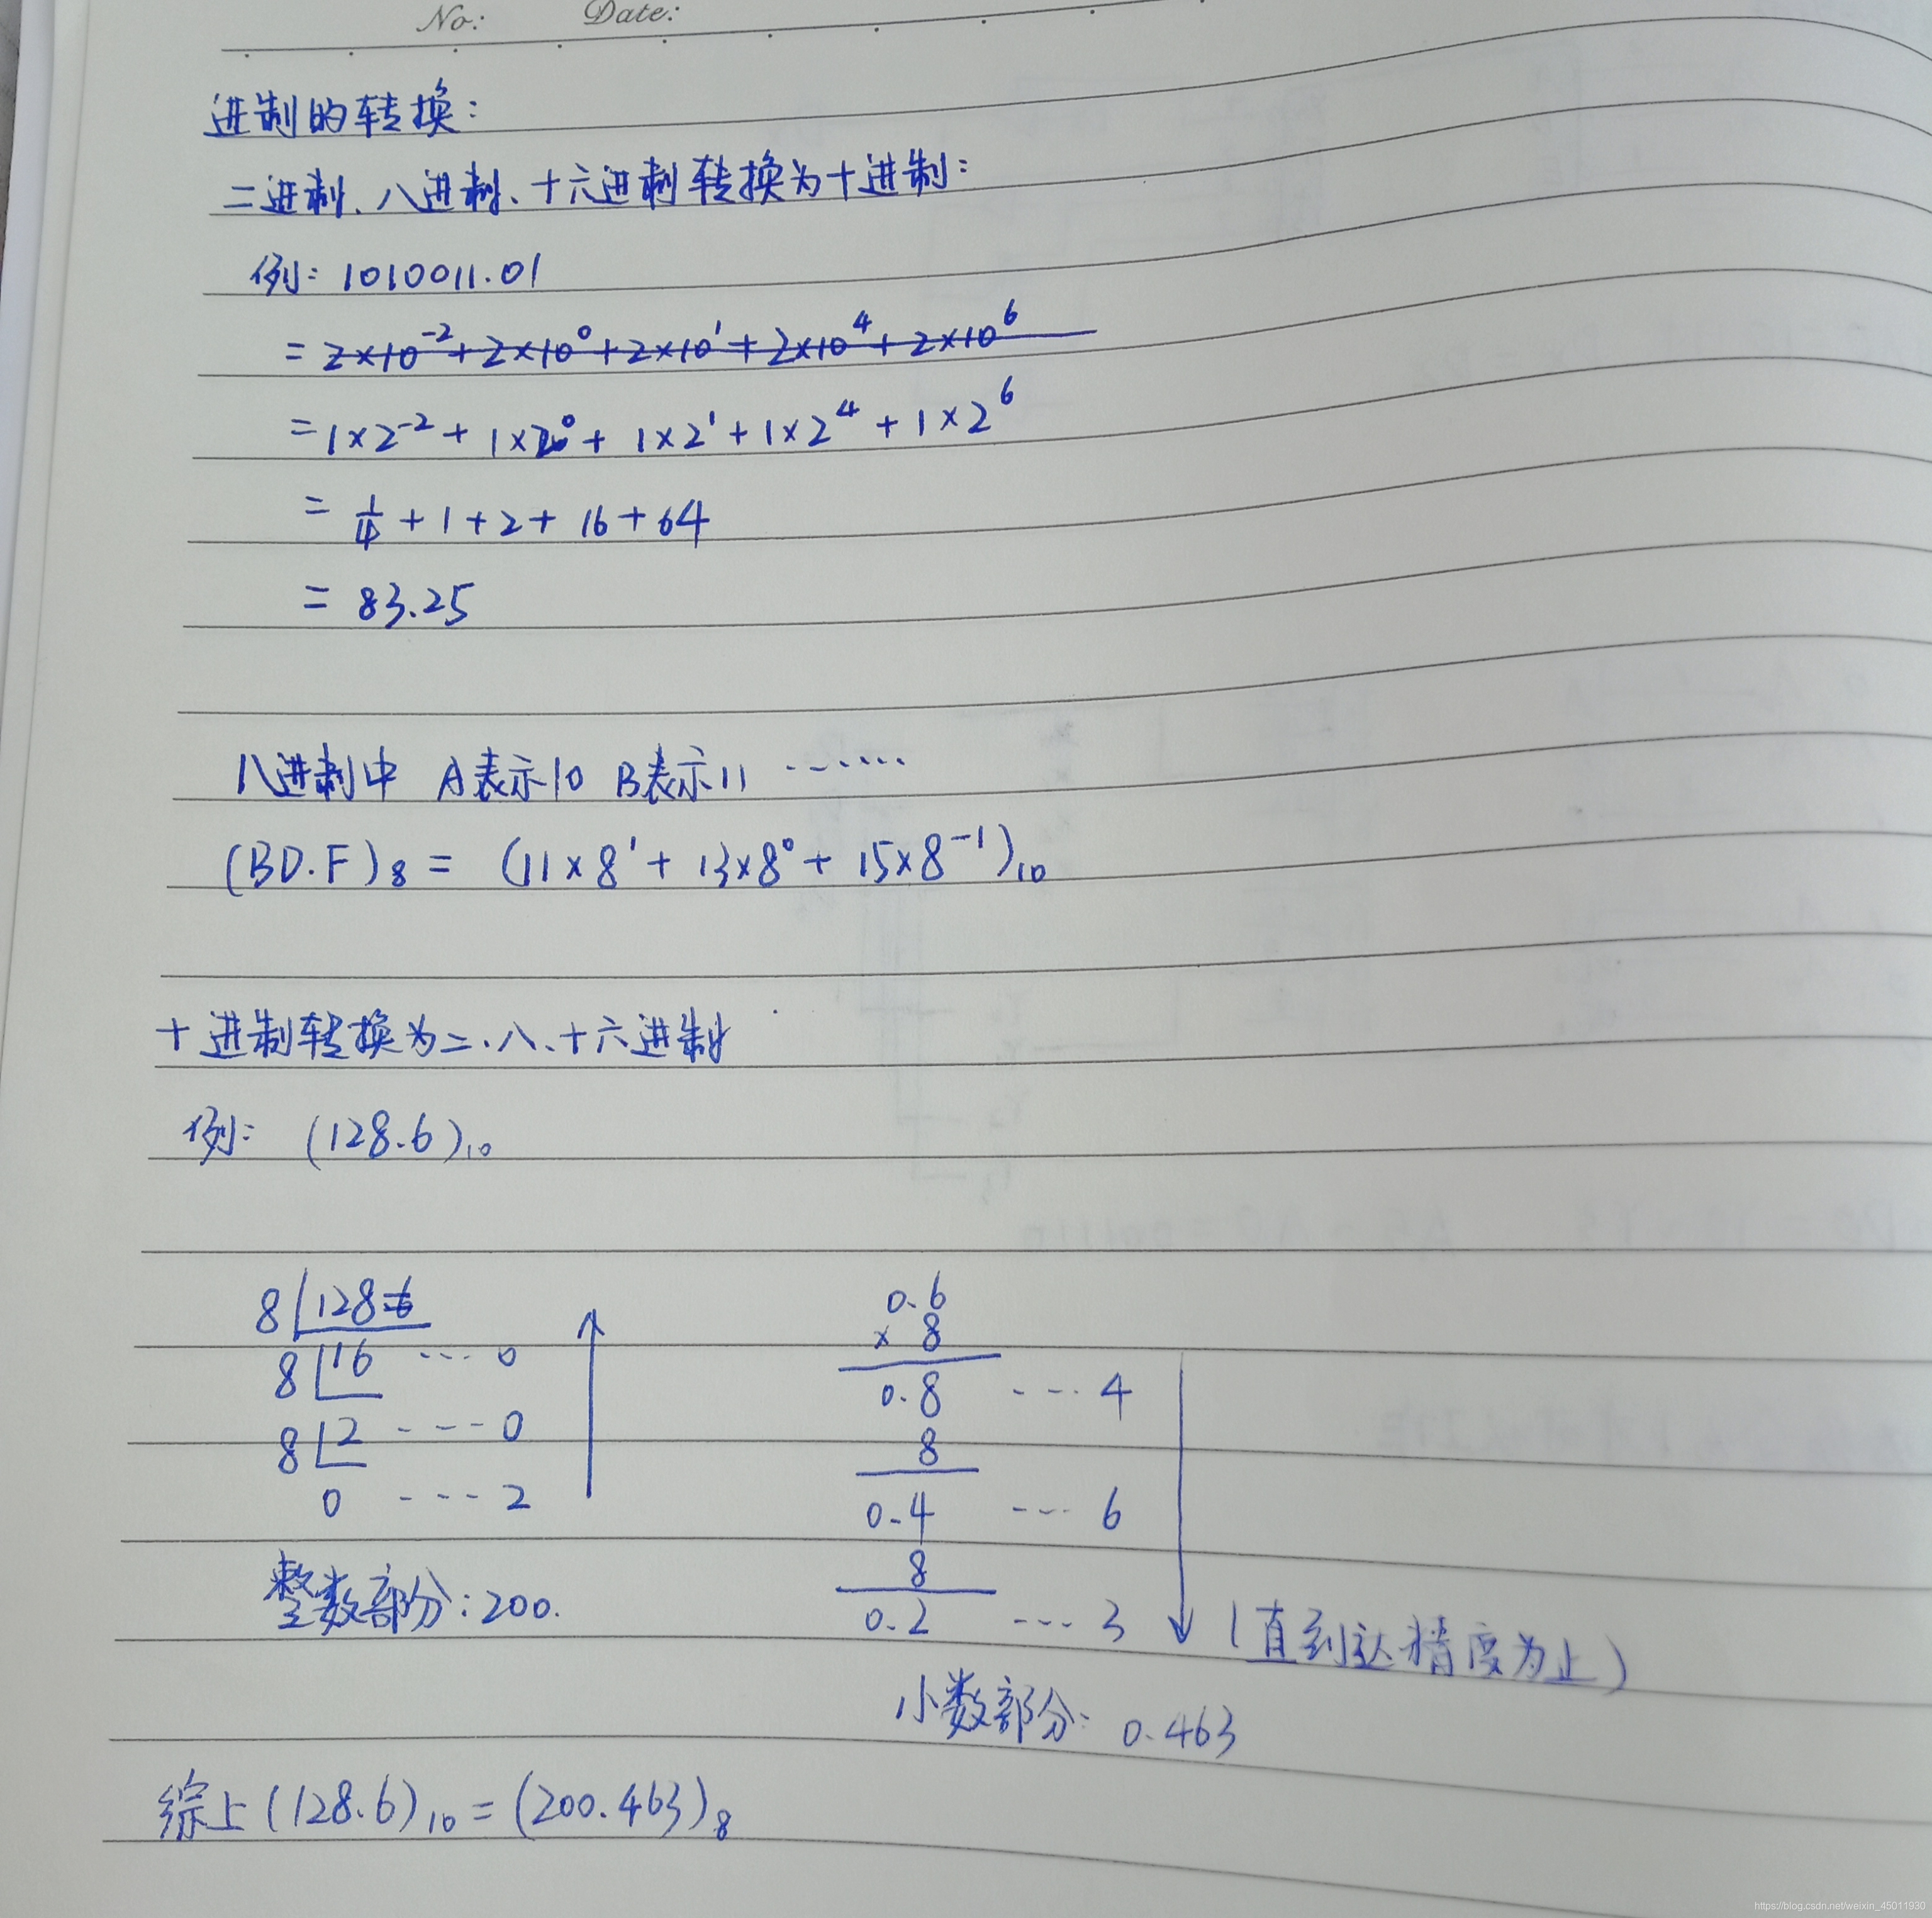 No:   Date:
进制的转换:
二进制、八进制、十六进制转换为十进制:
例: 1010011.01
= 2×10⁻² + 2×10⁰ + 2×10¹ + 2×10⁴ + 2×10⁶
= 1×2⁻² + 1×2⁰ + 1×2¹ + 1×2⁴ + 1×2⁶
= 1/4 + 1 + 2 + 16 + 64
= 83.25
八进制中 A表示10 B表示11 ·······
(BD.F)₈ = (11×8¹ + 13×8⁰ + 15×8⁻¹)₁₀
十进制转换为二、八、十六进制
例: (128.6)₁₀
8 128.6
8 16 ---- 0
8 2 ---- 0
0 ---- 2
整数部分: 200.
0.6
× 8
0.8 ---- 4
8
0.4 ---- 6
8
0.2 ---- 3
(直到达精度为止)
小数部分: 0.463
综上 (128.6)₁₀ = (200.463)₈
https://blog.csdn.net/weixin_45011930